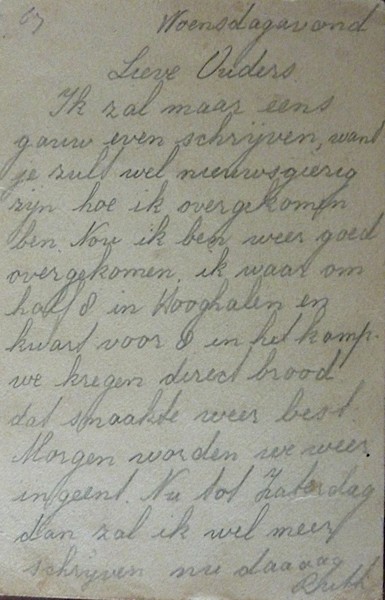 67
Woensdagavond
Lieve Ouders.
Ik zal maar eens
gauw even schrijven, want
je zult wel nieuwsgierig
zijn hoe ik overgekomen
ben. Nou ik ben weer goed
overgekomen, ik waar om
half 8 in Hooghalen en
kwart voor 8 in het kamp.
we kregen direct brood
dat smaakte weer best.
Morgen worden we weer
ingeent. Nu tot Zaterdag
dan zal ik wel meer
schrijven nu daaaag